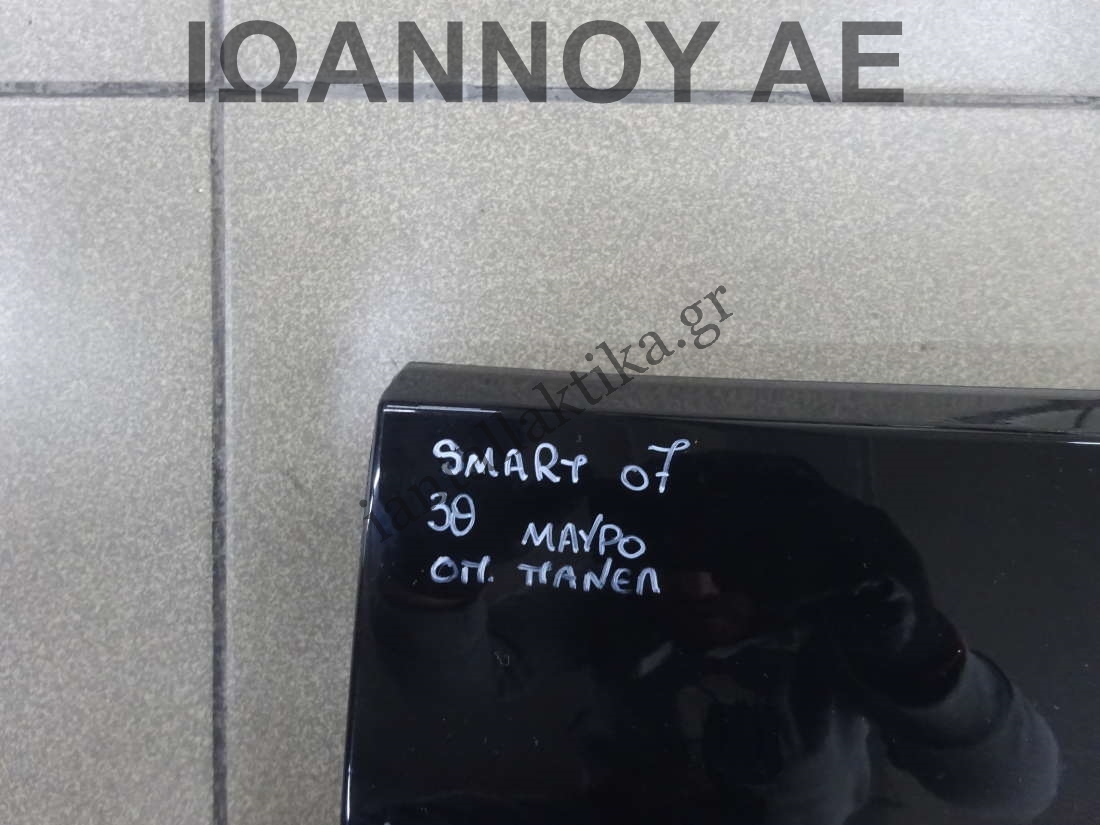 ΙΩΑΝΝΟΥ ΑΕ
antallaktika.gr
SMART 07
3Θ ΜΑΥΡΟ
ΟΠ. ΠΑΝΕΛ